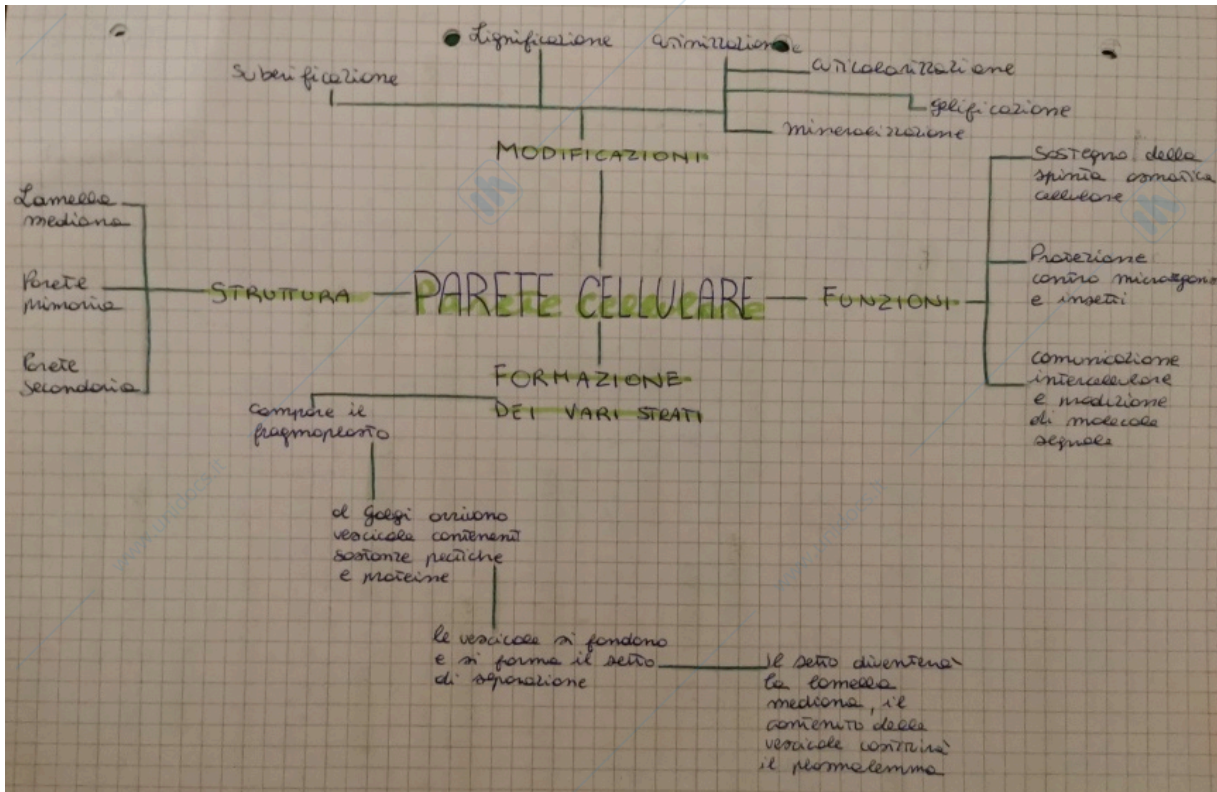 Lignificazione
cutinizzazione
suberificazione
cuticolarizzazione
gelificazione
mineralizzazione
MODIFICAZIONI
Lamella
mediana
Parete
primaria
Parete
secondaria
STRUTTURA
PARETE CELLULARE
FUNZIONI
Sostegno della
spinta osmotica
cellulare
Protezione
contro microrgani
e insetti
comunicazione
intercellulare
e
di molecole
segnale
FORMAZIONE
DEI VARI STRATI
compare il
fragmoplasto
al Golgi arrivono
vescicole contenenti
sostanze pectiche
e proteine
le vescicole si fondono
e si forma il setto
di separazione
il setto diventerà
la lamella
mediana, il
contenuto delle
vescicole costituirà
il plasmalemma